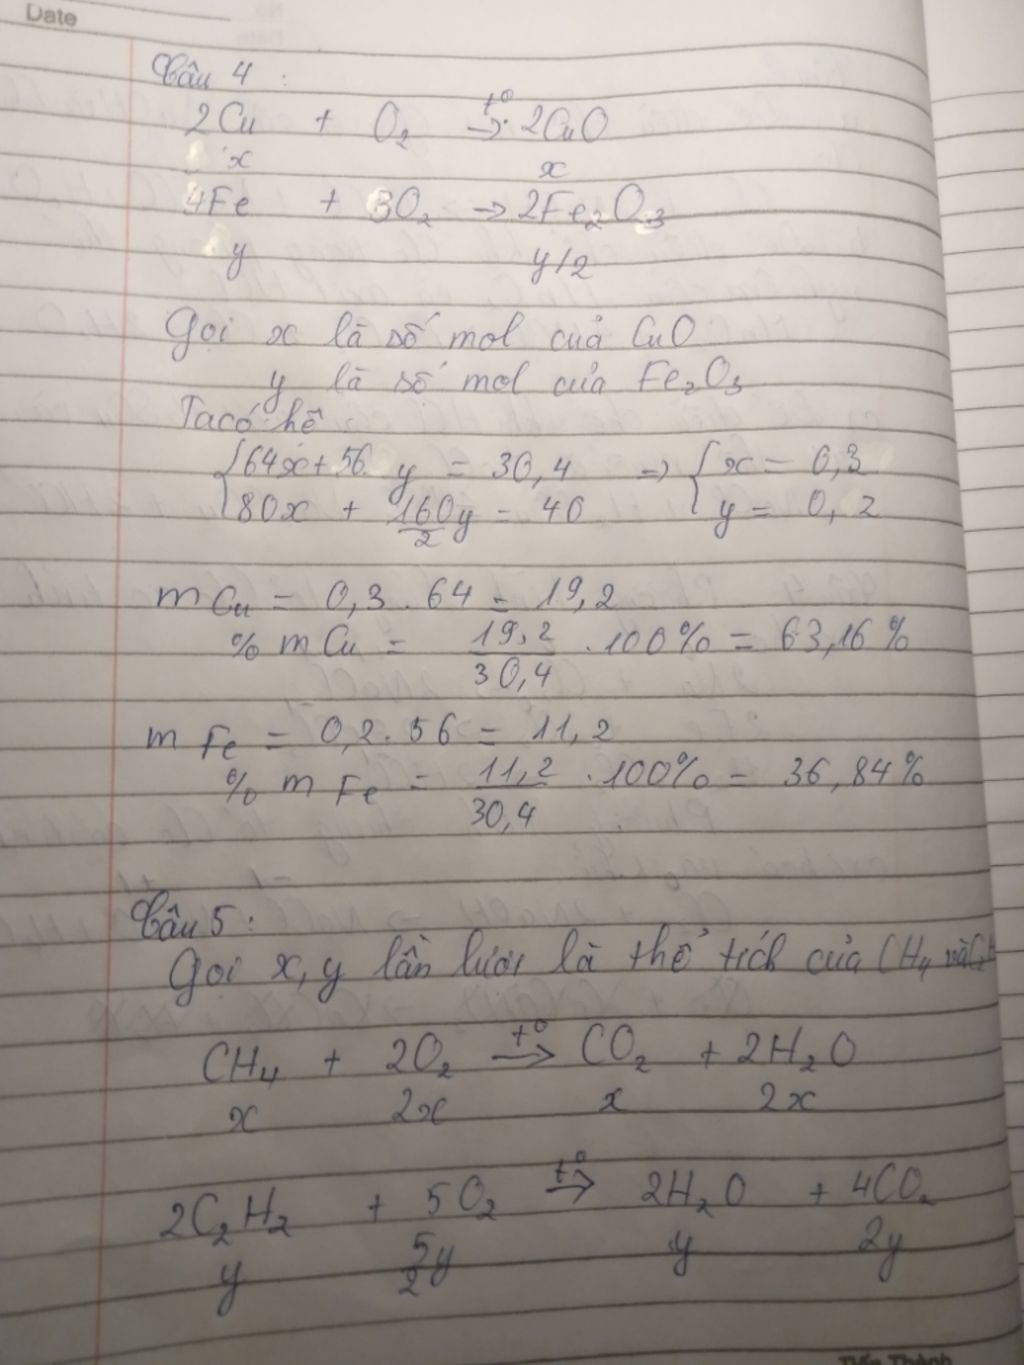 Date
Câu 4 :
2Cu + O₂ →t° 2CuO
x x
4Fe + 3O₂ → 2Fe₂O₃
y y/2
Gọi x là số mol của CuO
y là số mol của Fe₂O₃
Ta có hệ :
{64x + 56 y = 30,4 => {x = 0,3
80x + 160/2 y = 40 y = 0,2
m Cu = 0,3 . 64 = 19,2
% m Cu = 19,2/30,4 . 100% = 63,16 %
m Fe = 0,2 . 56 = 11,2
% m Fe = 11,2/30,4 . 100% = 36,84 %
Câu 5 :
Gọi x, y lần lượt là thể tích của CH₄ và
CH₄ + 2O₂ →t° CO₂ + 2H₂O
x 2x x 2x
2C₂H₂ + 5O₂ →t° 2H₂O + 4CO₂
y 5/2 y y 2y